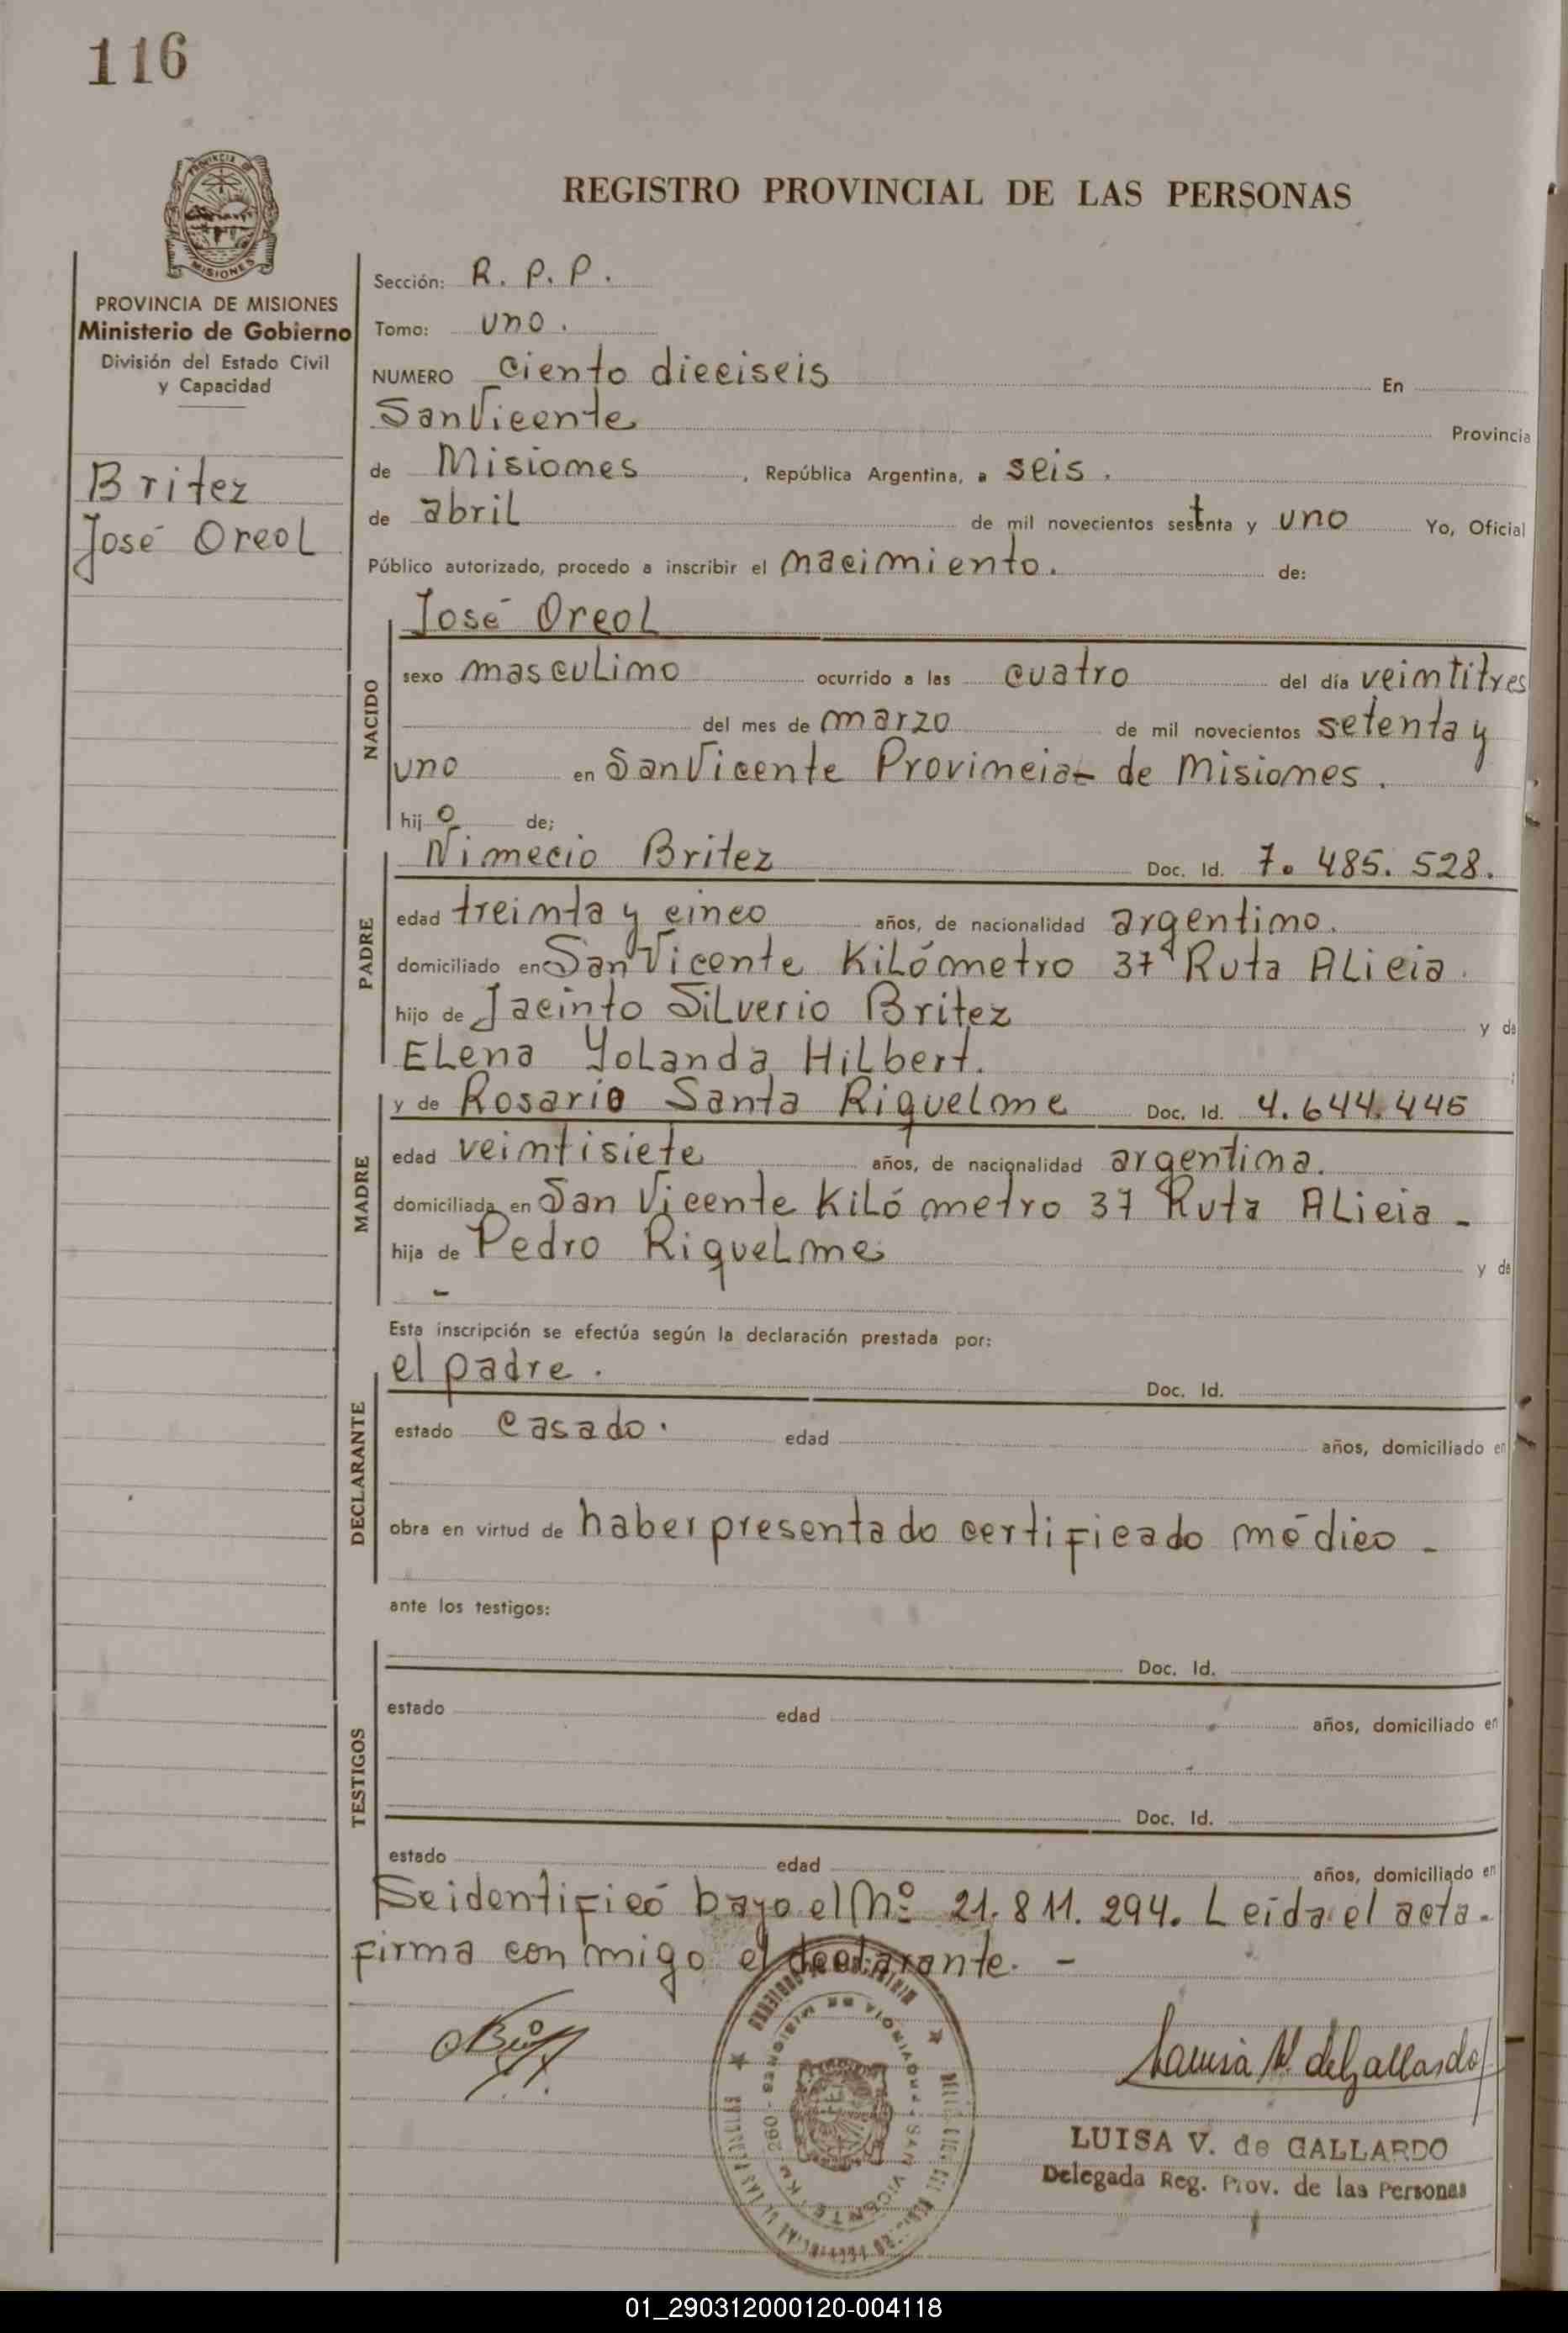 116
REGISTRO PROVINCIAL DE LAS PERSONAS
PROVINCIA DE MISIONES
Ministerio de Gobierno
División del Estado Civil
y Capacidad
Britez
José Oreol
Sección: R. P. P.
Tomo: uno.
NUMERO ciento dieciseis En
San Vicente Provincia
de Misiones, República Argentina, a seis.
de abril de mil novecientos setenta y uno Yo, Oficial
Público autorizado, procedo a inscribir el nacimiento. de:
NACIDO
José Oreol
sexo masculino ocurrido a las cuatro del día veintitres
del mes de marzo de mil novecientos setenta y
uno en San Vicente Provincia de Misiones.
hijo de;
PADRE
Nimecio Britez Doc. Id. 7.485.528.
edad treinta y cinco años, de nacionalidad argentino.
domiciliado en San Vicente Kilómetro 37 Ruta Alicia.
hijo de Jacinto Silverio Britez y de
Elena Yolanda Hilbert.
MADRE
y de Rosario Santa Riquelme Doc. Id. 4.644.446
edad veintisiete años, de nacionalidad argentina.
domiciliada en San Vicente Kilómetro 37 Ruta Alicia -
hija de Pedro Riquelme y de
-
Esta inscripción se efectúa según la declaración prestada por:
DECLARANTE
el padre. Doc. Id.
estado casado. edad años, domiciliado en
obra en virtud de haber presentado certificado médico -
ante los testigos:
TESTIGOS
Doc. Id.
estado edad años, domiciliado en
Doc. Id.
estado edad años, domiciliado en
Se identificó bayo el Nº 21.811.294. Leída el acta.
firma conmigo el declarante. -
LUISA V. de GALLARDO
Delegada Reg. Prov. de las Personas
01_290312000120-004118